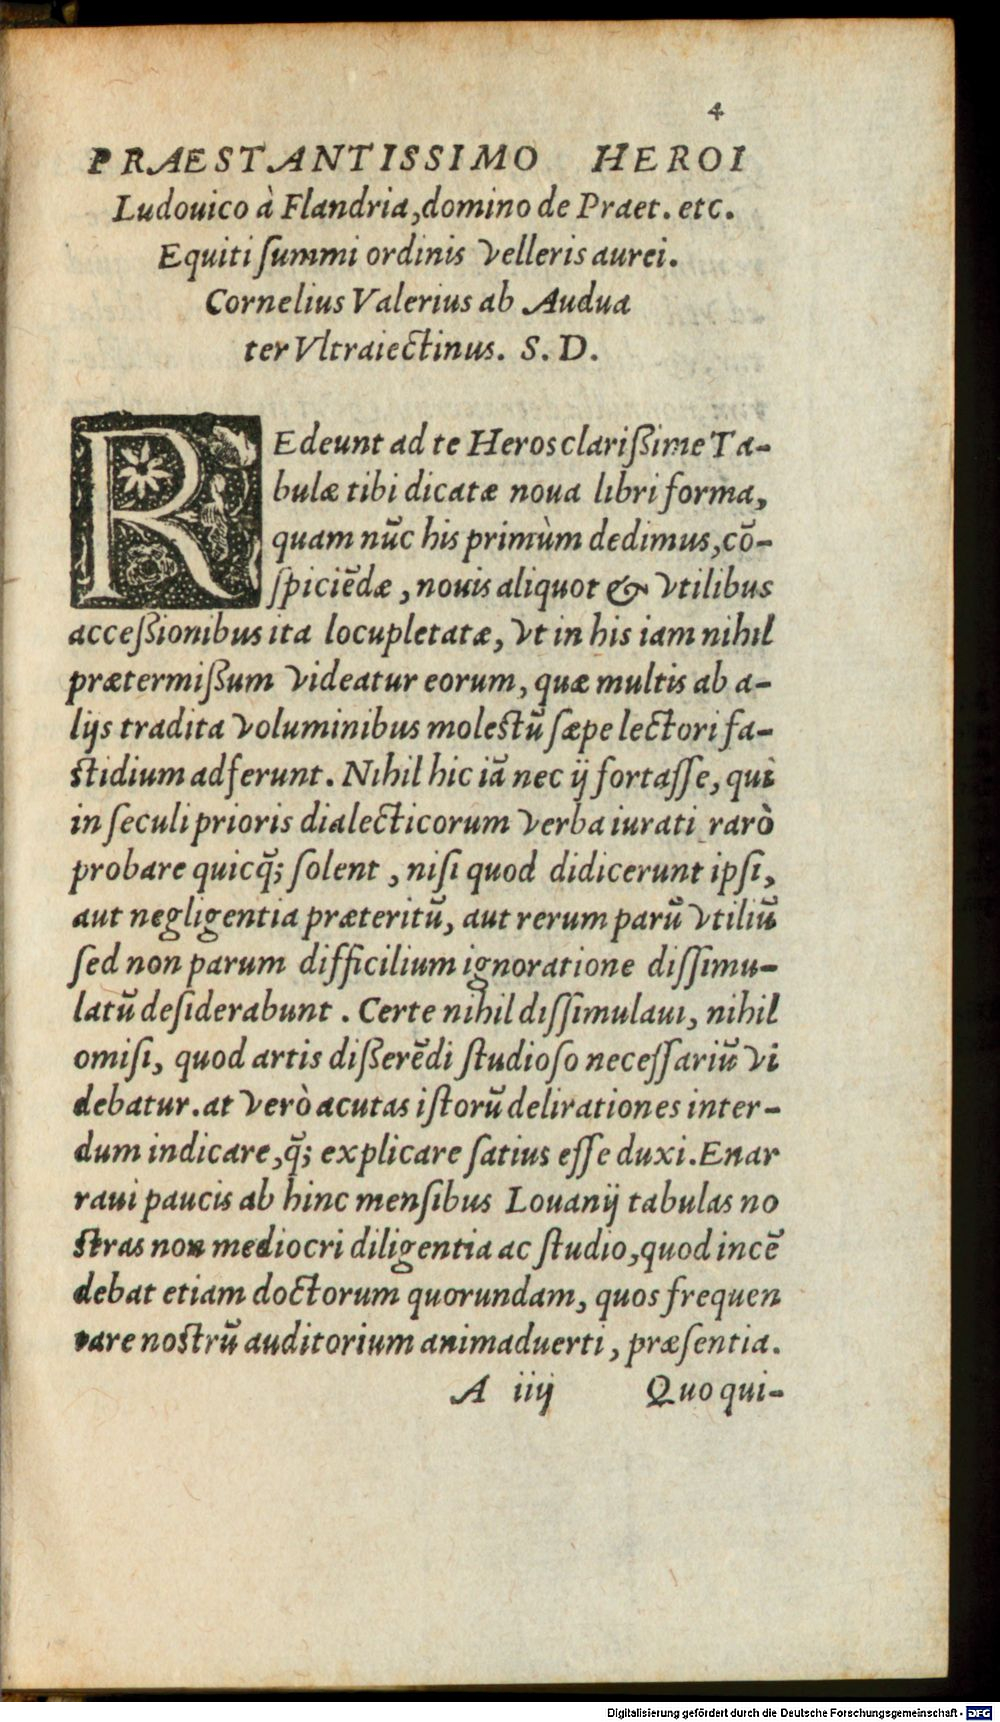 4
PRAESTANTISSIMO HEROI
Ludouico à Flandria, domino de Praet. etc.
Equiti ſummi ordinis Velleris aurei.
Cornelius Valerius ab Audua
ter Vltraiectinus. S. D.
REdeunt ad te Heros clarißime Ta-
bulæ tibi dicatæ noua libri forma,
quam nūc his primùm dedimus, cō-
ſpiciēdæ, nouis aliquot & vtilibus
acceßionibus ita locupletatæ, vt in his iam nihil
prætermißum videatur eorum, quæ multis ab a-
lijs tradita voluminibus moleſtū ſæpe lectori fa-
ſtidium adferunt. Nihil hic iā nec ij fortaſſe, qui
in ſeculi prioris dialecticorum verba iurati rarò
probare quicq̃; ſolent, niſi quod didicerunt ipſi,
aut negligentia præteritū, aut rerum parū vtiliū
ſed non parum difficilium ignoratione diſſimu-
latū deſiderabunt. Certe nihil diſſimulaui, nihil
omiſi, quod artis dißerēdi ſtudioſo neceſſariū vi
debatur. at verò acutas iſtorū delirationes inter-
dum indicare, q̃; explicare ſatius eſſe duxi. Enar
raui paucis ab hinc menſibus Louanij tabulas no
ſtras non mediocri diligentia ac ſtudio, quod incē
debat etiam doctorum quorundam, quos frequen
tare noſtrū auditorium animaduerti, præſentia.
A iiij Quo qui-
Digitalisierung gefördert durch die Deutsche Forschungsgemeinschaft - DFG